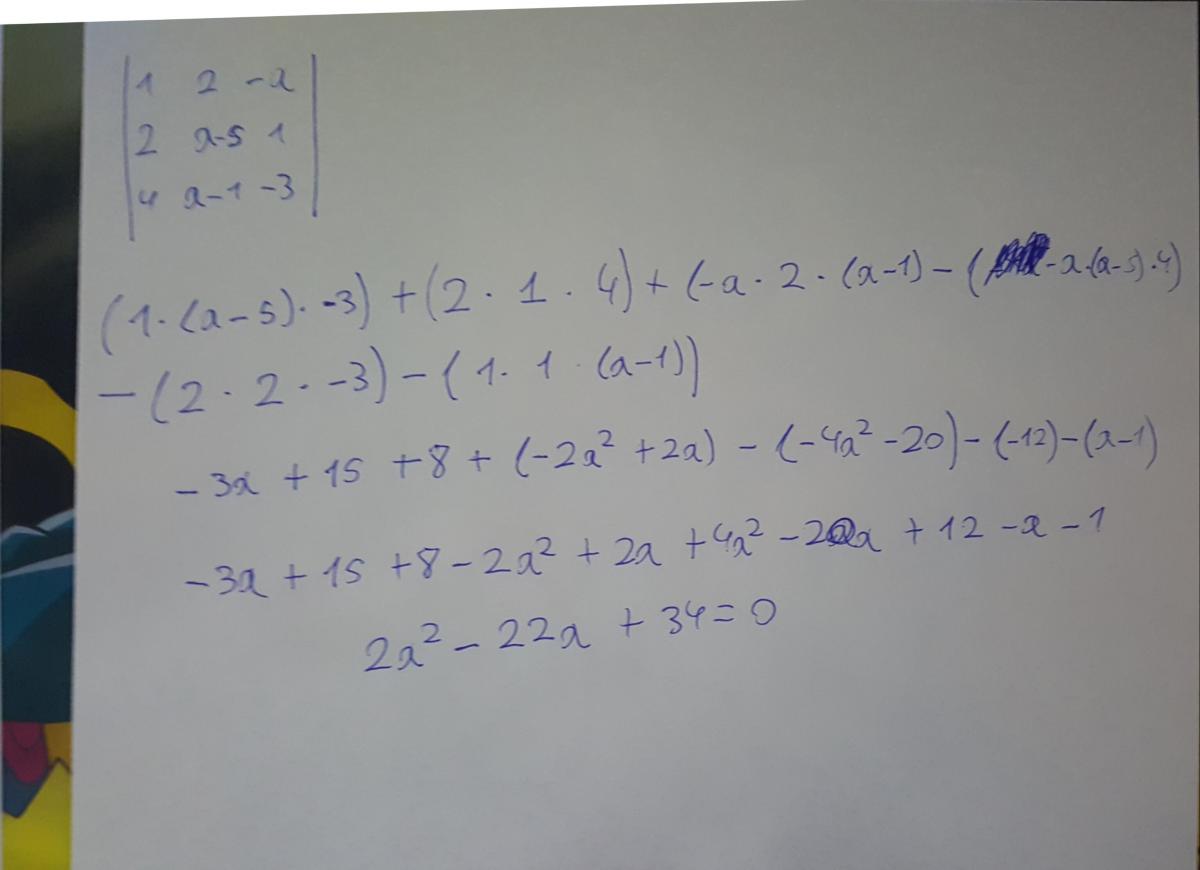 | 1 2 -a |
| 2 a-5 1 |
| 4 a-1 -3 |
(1·(a-5)·-3) + (2·1·4) + (-a·2·(a-1) - (-a·(a-5)·4)
- (2·2·-3) - (1·1·(a-1))
-3a + 15 + 8 + (-2a² + 2a) - (-4a² - 20) - (-12) - (a-1)
-3a + 15 + 8 - 2a² + 2a + 4a² - 20a + 12 - a - 1
2a² - 22a + 34 = 0